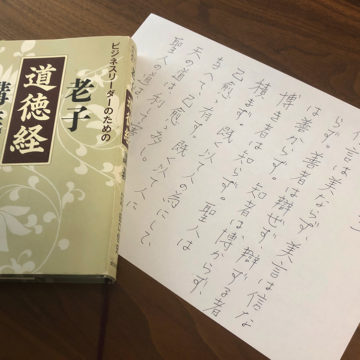 ビジネスリーダーのための
老子
道徳経
言は美ならず、美言は信な
らず。善者は辯ぜず、辯ずる者
は善からず。知者は博からず、
博き者は知らず。聖人は
積まず。既く以て人の為にして
己愈有す。既く以て人に
与へて己愈多し。
天の道は利
聖人の道は